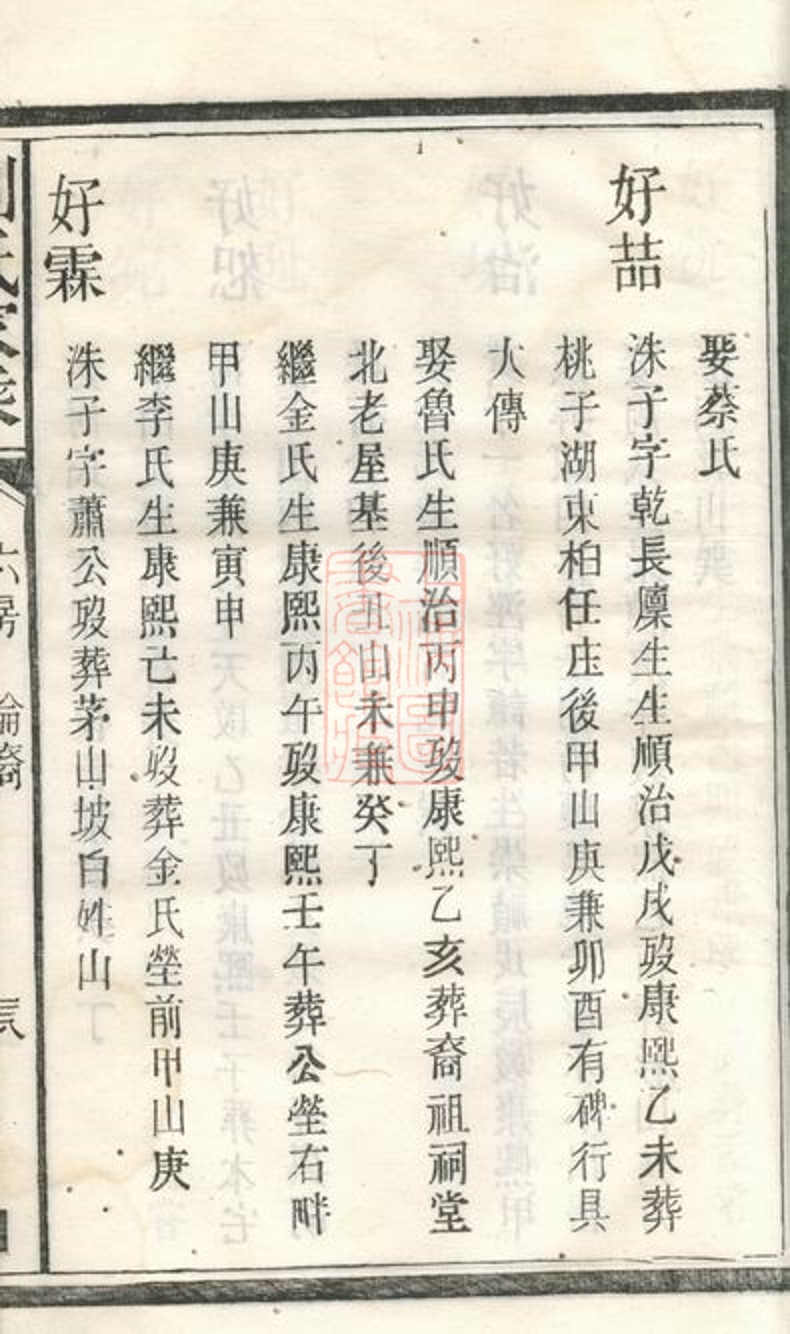 娶蔡氏
好喆
洙子字乾長廩生生順治戊戌歿康熙乙未葬
桃子湖東柏任庄後甲山庚兼卯酉有碑行具
大傳
娶魯氏生順治丙申歿康熙乙亥葬裔祖祠堂
北老屋基後丑山未兼癸丁
繼金氏生康熙丙午歿康熙壬午葬公塋右畔
甲山庚兼寅申
繼李氏生康熙亡未歿葬金氏塋前甲山庚
好霖
洙子字蕭公歿葬茅山坡白姓山
六房